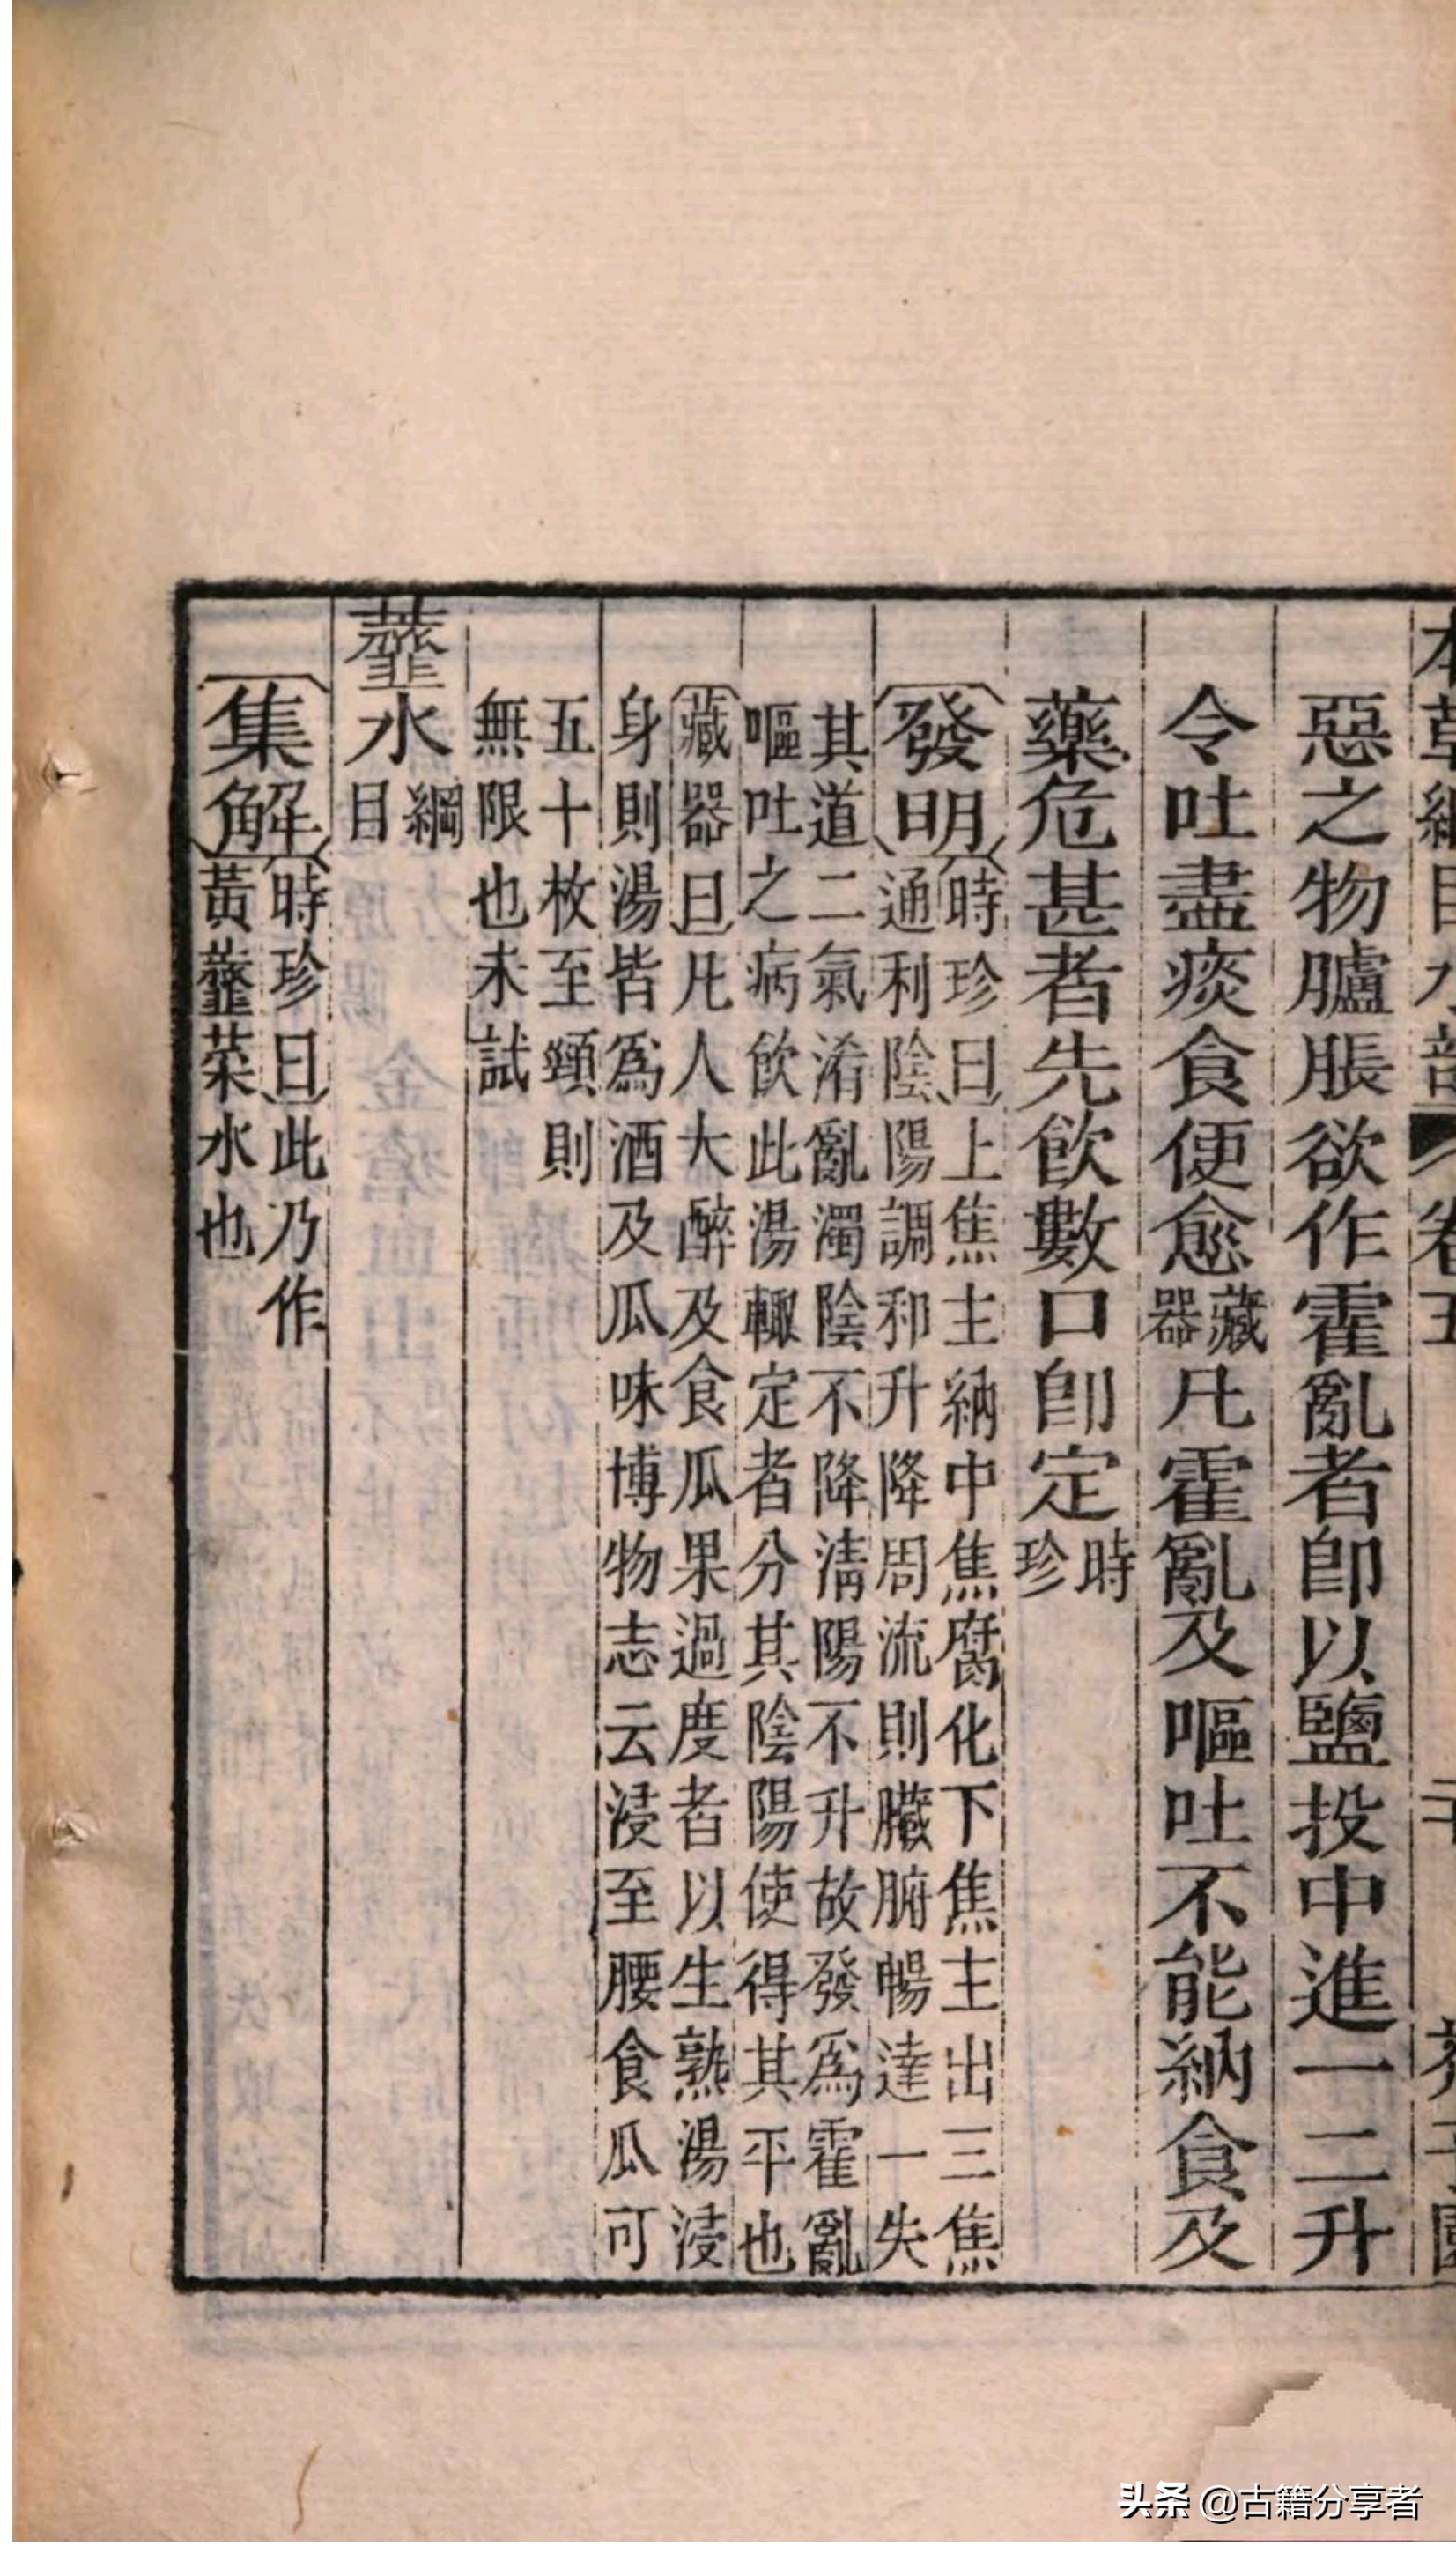 本草綱目水部 卷五
惡之物臚脹欲作霍亂者卽以鹽投中進一二升
令吐盡痰食便愈藏器凡霍亂及嘔吐不能納食及
藥危甚者先飲數口卽定時珍
發明時珍曰上焦主納中焦腐化下焦主出三焦
通利陰陽調和升降周流則臟腑暢達一失
其道二氣淆亂濁陰不降清陽不升故發爲霍亂
嘔吐之病飲此湯輒定者分其陰陽使得其平也
藏器曰凡人大醉及食瓜果過度者以生熟湯浸
身則湯皆爲酒及瓜味博物志云浸至腰食瓜可
五十枚至頸則
無限也未試
虀水綱目
集解時珍曰此乃作
黃虀菜水也
头条 @古籍分享者